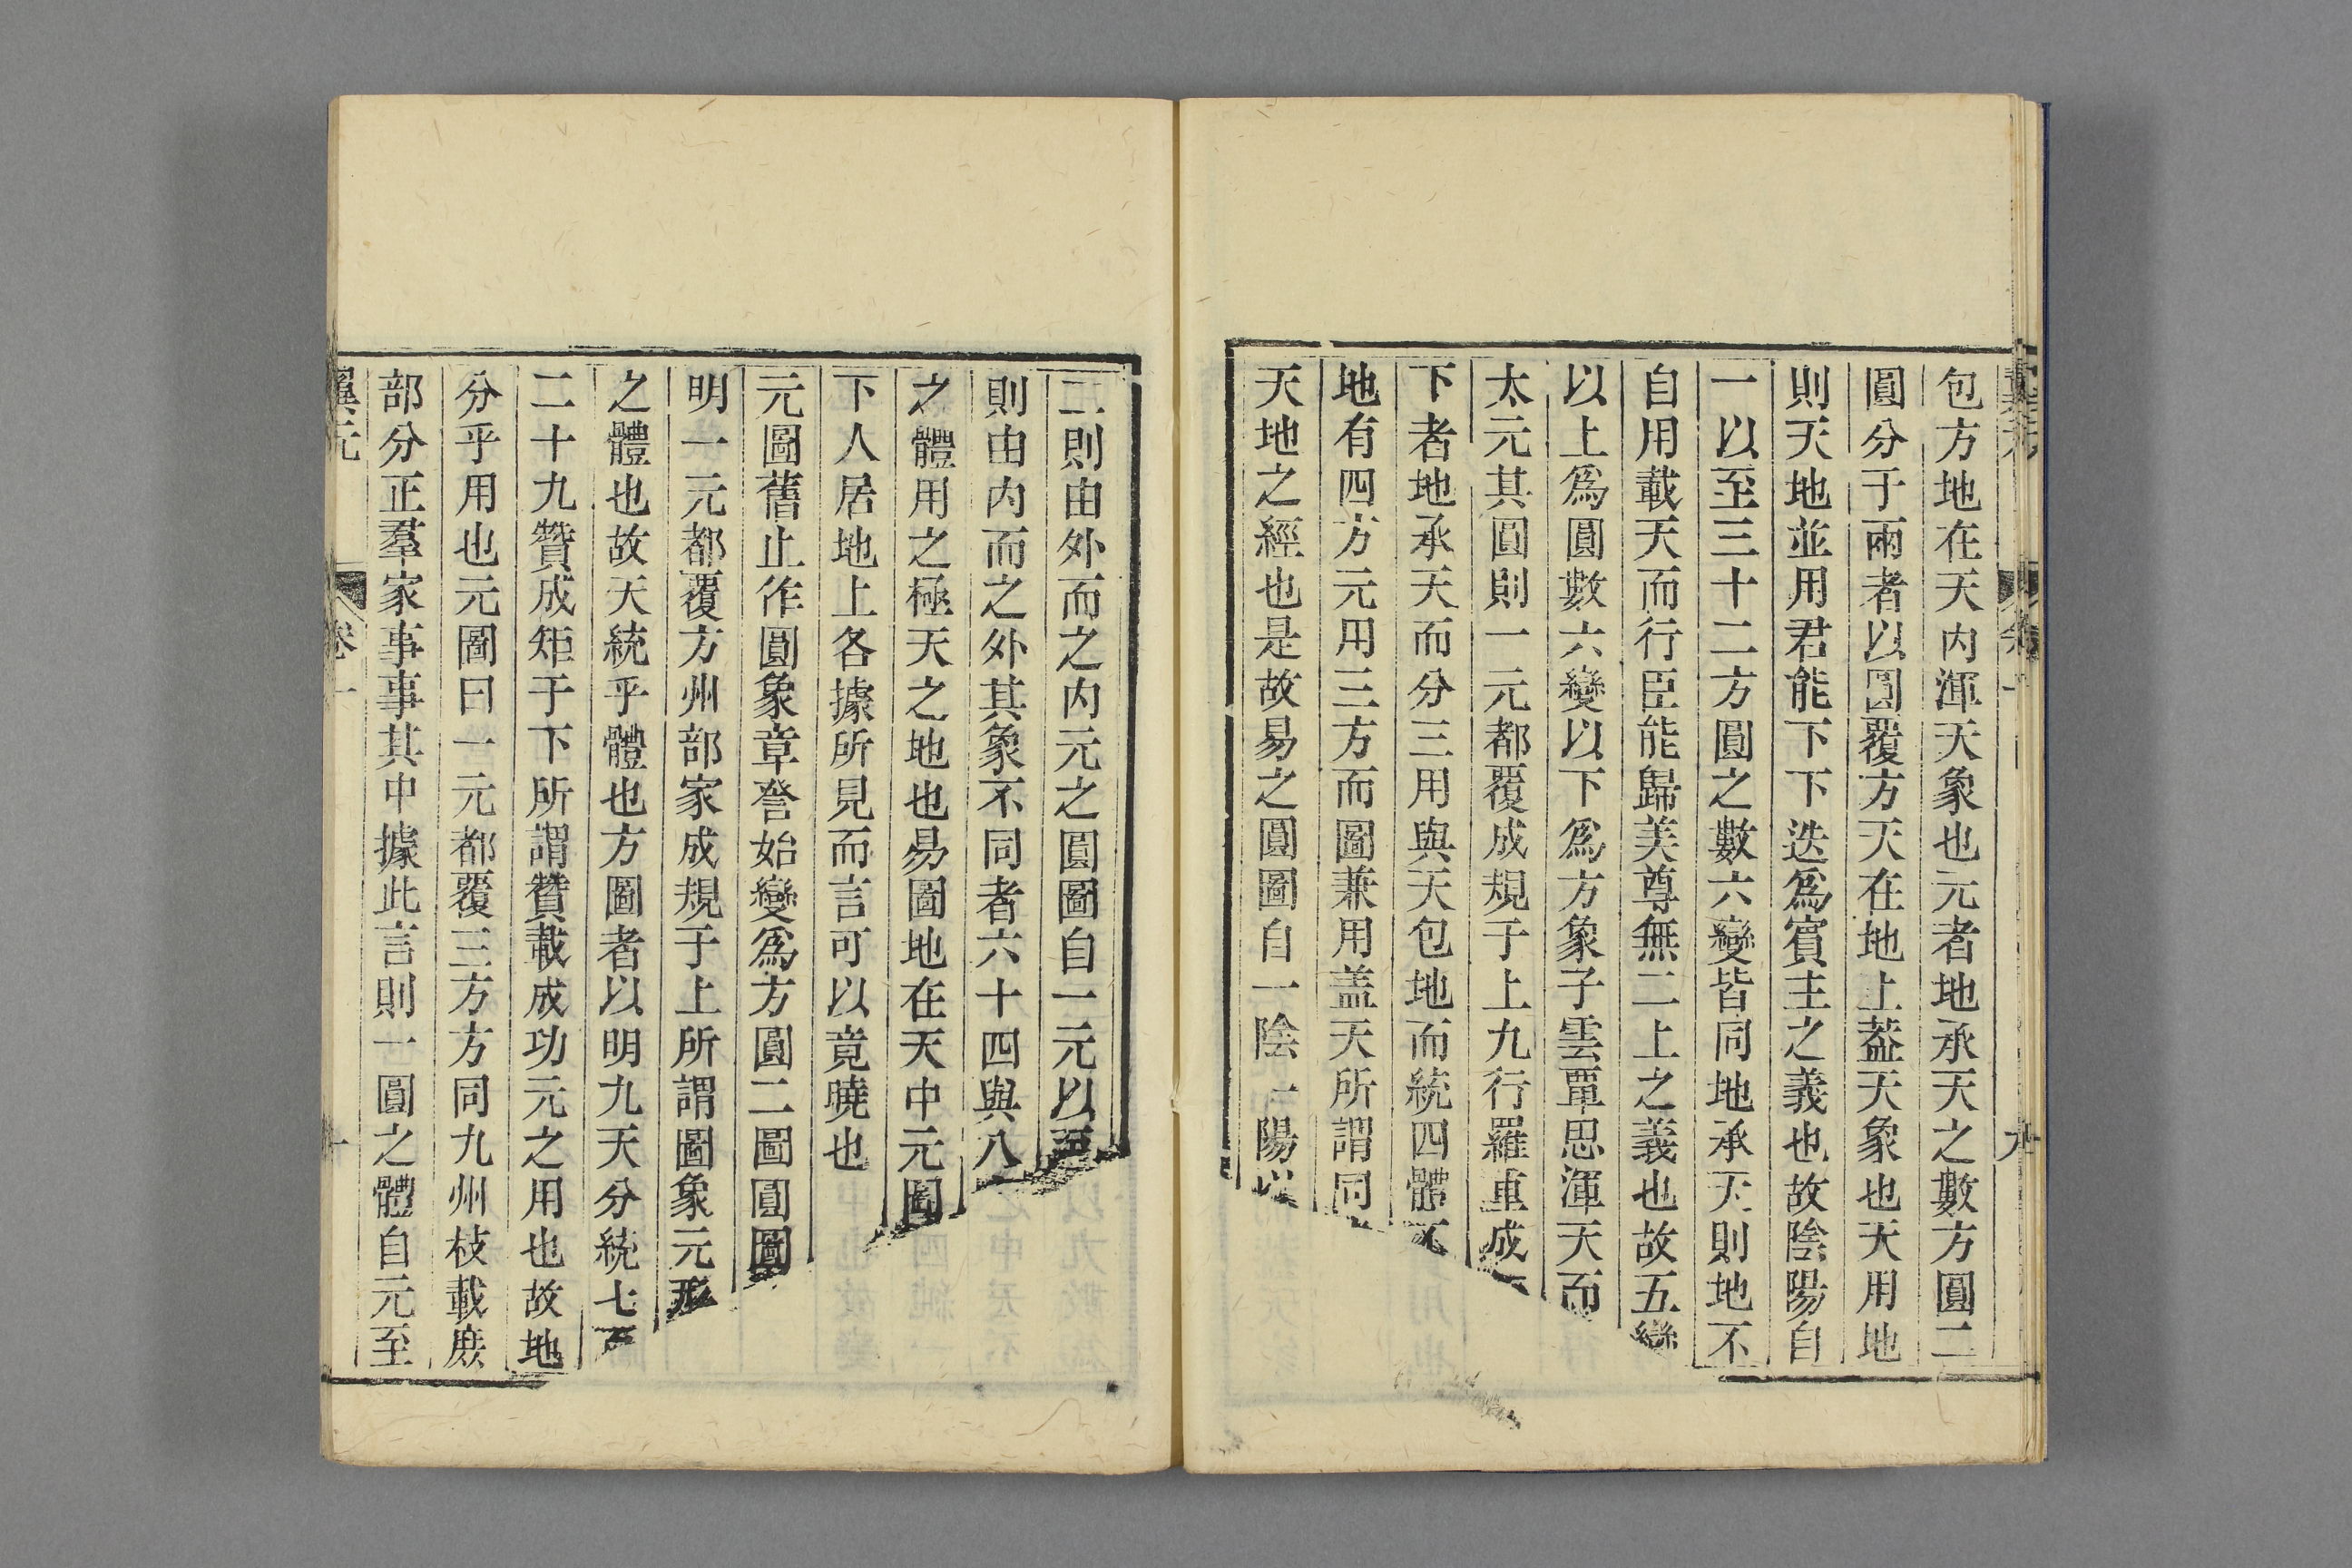 包方地在天内渾天象也元者地承天之數方圓二
圓分于兩者以圓覆方天在地上葢天象也天用地
則天地並用君能下下迭爲賓主之義也故陰陽自
一以至三十二方圓之數六變皆同地承天則地不
自用載天而行臣能歸美尊無二上之義也故五變
以上爲圓數六變以下爲方象子雲覃思渾天而
太元其圓則一元都覆成規于上九行羅重成
下者地承天而分三用與天包地而統四體不
地有四方元用三方而圖兼用盖天所謂同
天地之經也是故易之圓圖自一陰一陽以
二則由外而之内元之圓圖自一元以至
則由内而之外其象不同者六十四與八
之體用之極天之地也易圖地在天中元圖
下人居地上各據所見而言可以竟曉也
元圖舊止作圓象章詧始變爲方圓二圖圓圖
明一元都覆方州部家成規于上所謂圖象元形
之體也故天統乎體也方圖者以明九天分統七百
二十九贊成矩于下所謂贊載成功元之用也故地
分乎用也元圖曰一元都覆三方方同九州枝載庶
部分正羣家事事其中據此言則一圓之體自元至